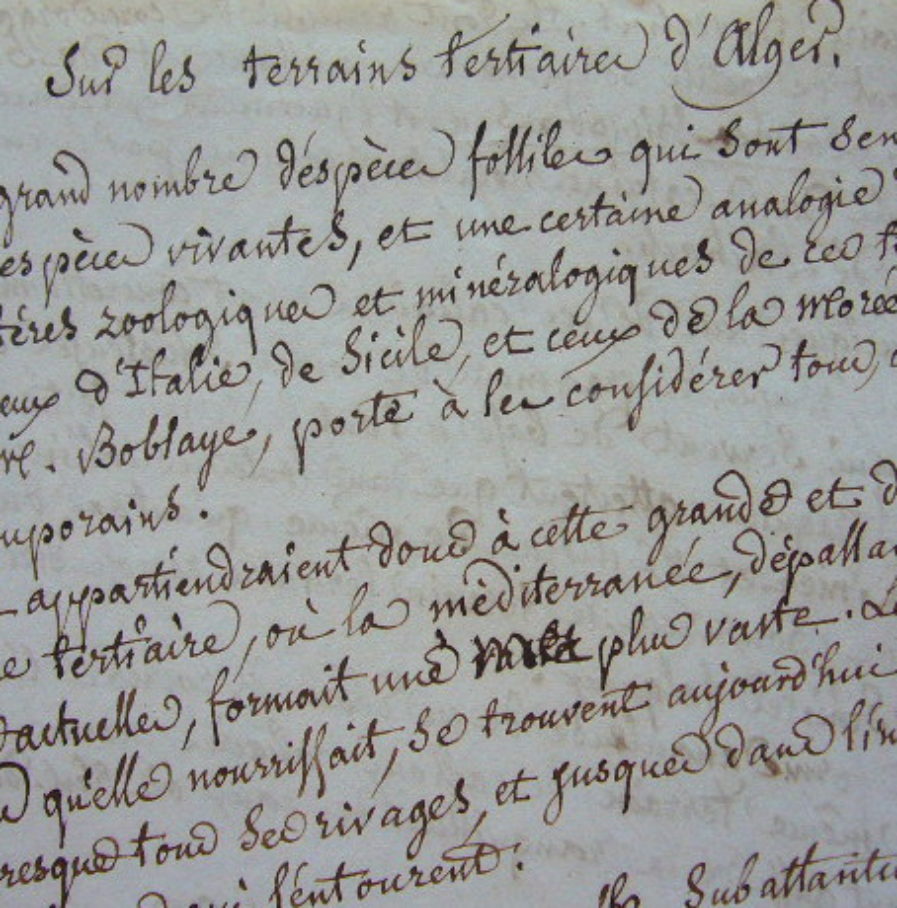 Sur les terrains tertiaires d'Alger.
grand nombre d'espèces fossiles qui sont sem
espèces vivantes, et une certaine analogie
tères zoologiques et minéralogiques de ces t
eux d'Italie, de Sicile, et ceux de la Morée
M. Boblaye, porte à les considérer tous, c
mporains.
appartiendraient donc à cette grande et d
e tertiaire, où la méditerranée, dépassa
actuelles, formait une plus vaste. Le
qu'elle nourrissait, se trouvent aujourd'hui
resque tous ses rivages, et jusques dans l'in
qui l'entourent.
Subatlanti